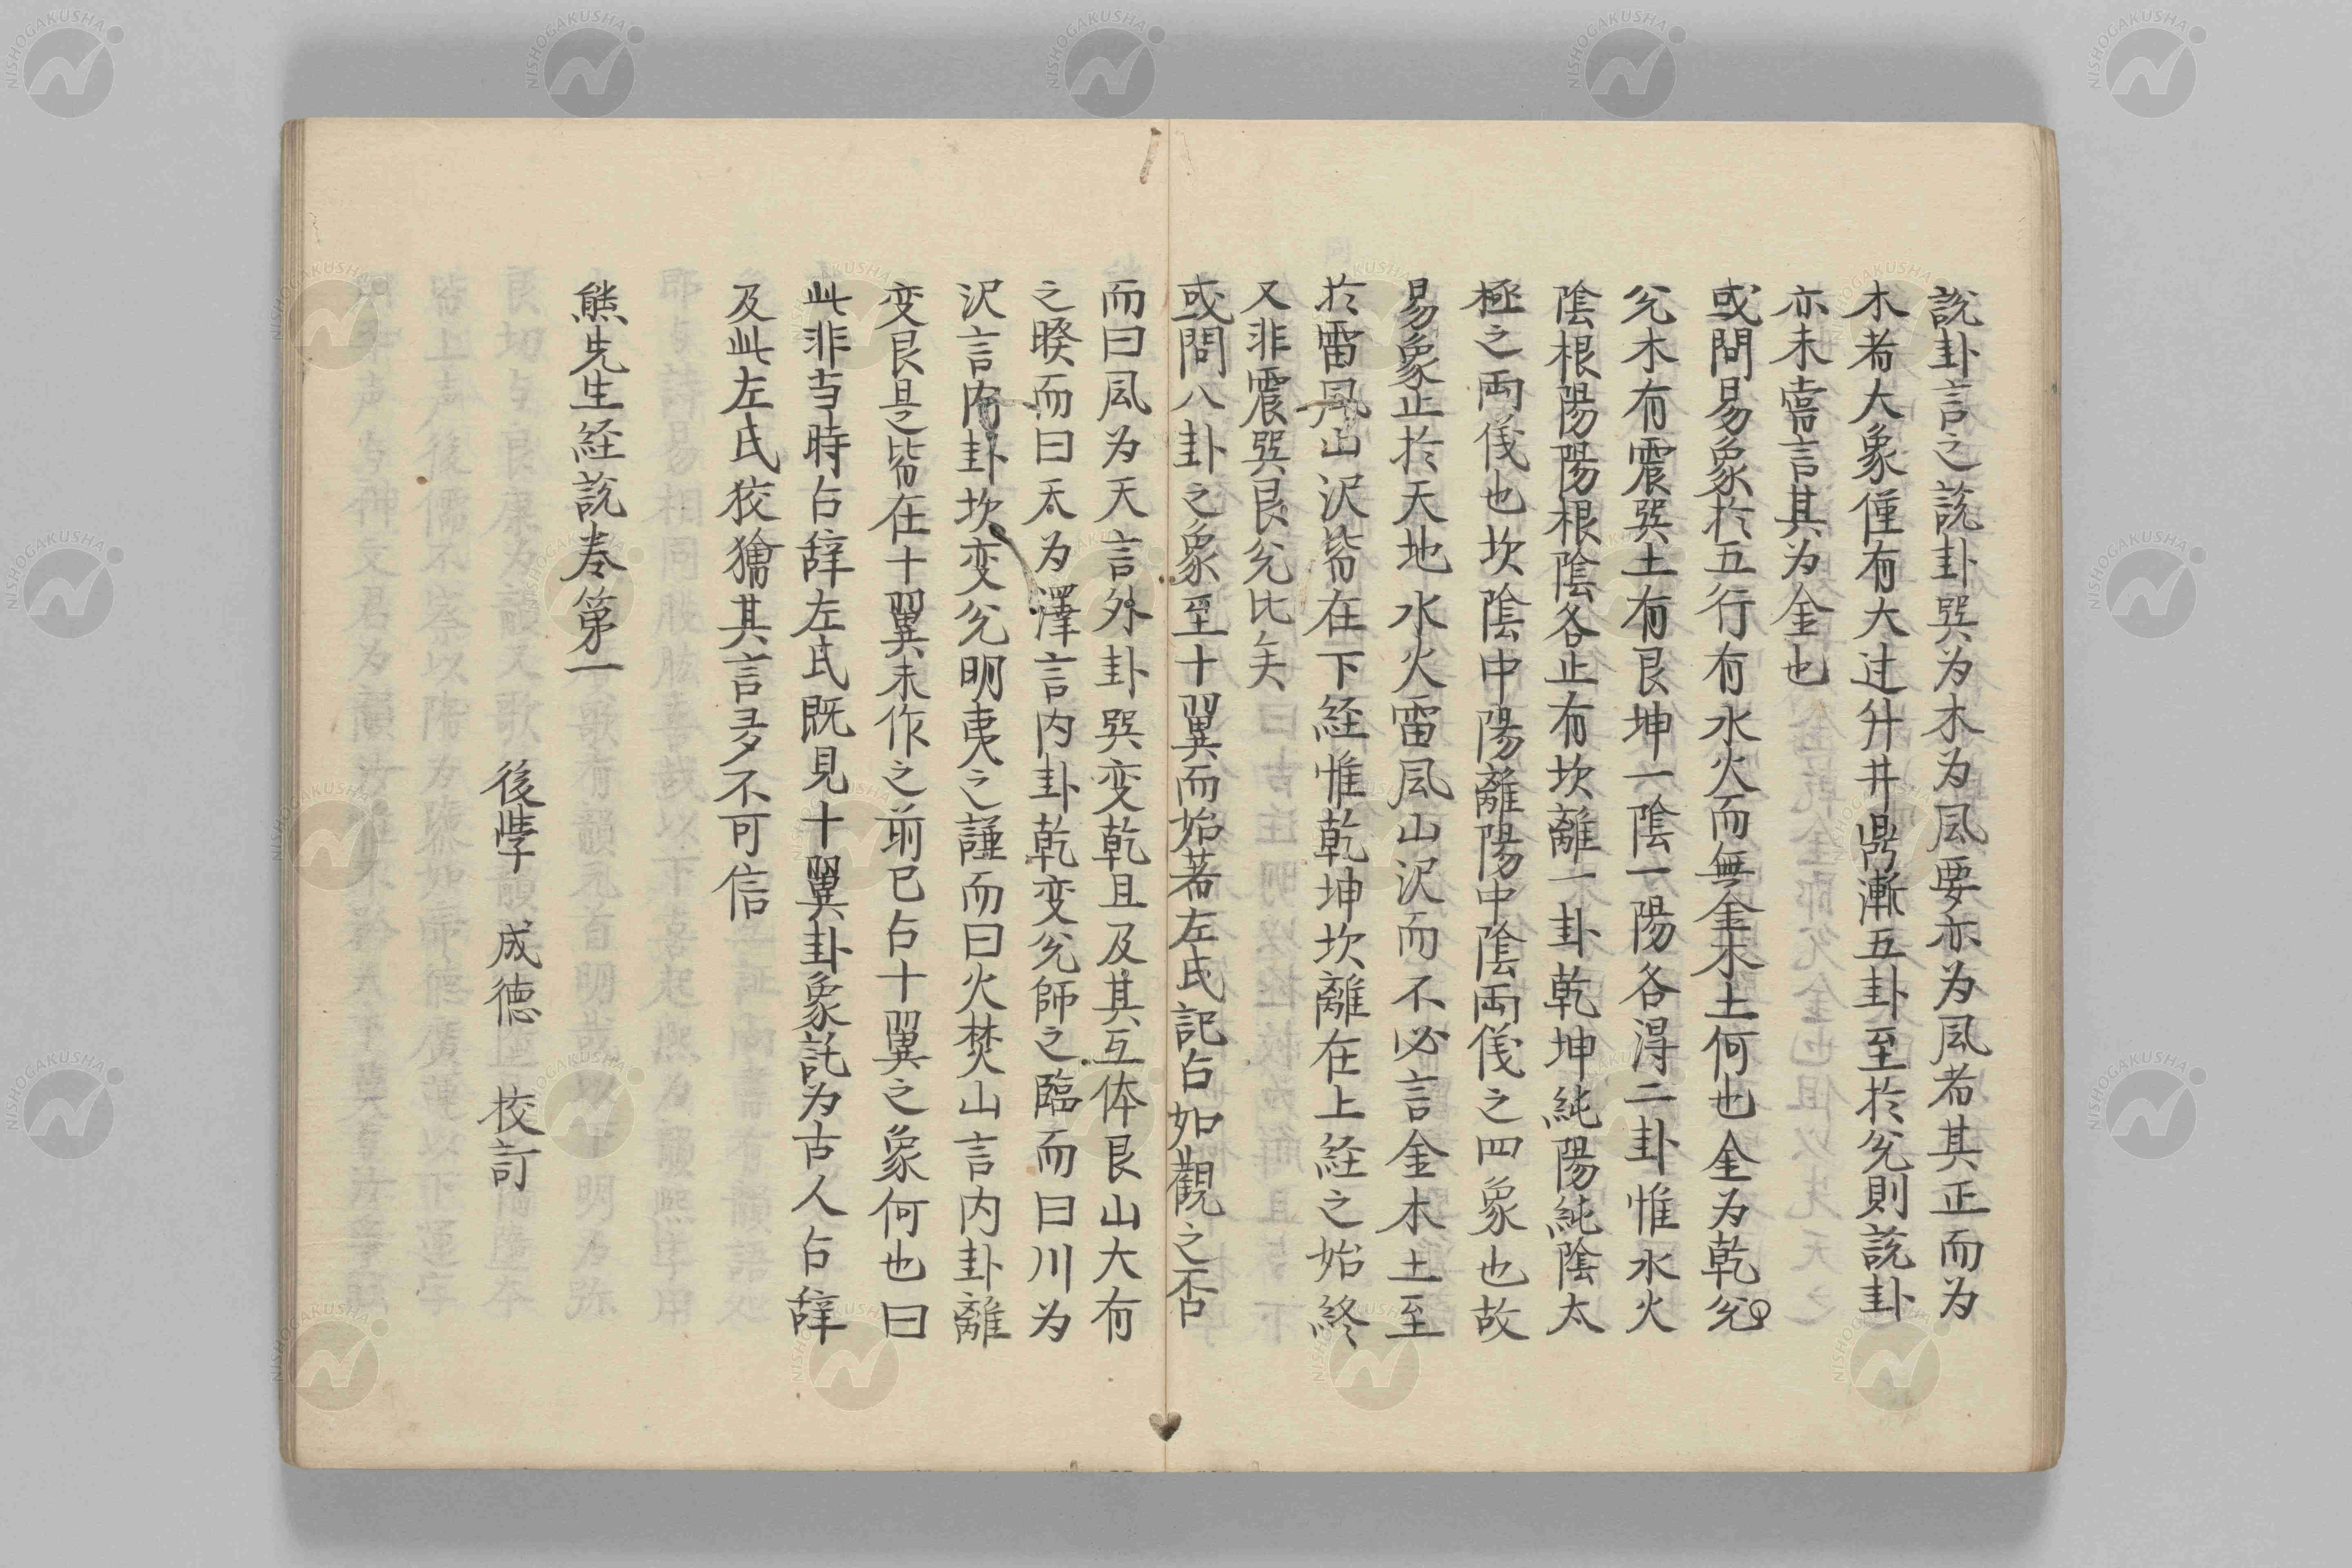 説卦言之説卦巽为木为风要亦为风者其正而为
木者大象僅有大过升井鼎漸五卦至於兊則説卦
亦未嘗言其为金也
或問易象於五行有水火而無金木土何也金为乾兊
兊木有震巽土有艮坤一陰一陽各淂二卦惟水火
陰根陽陽根陰各止有坎離一卦乾坤純陽純陰太
極之两儀也坎陰中陽離陽中陰两儀之四象也故
易象止於天地水火雷风山沢而不必言金木土至
於雷風山沢皆在下経惟乾坤坎離在上経之始終
又非震巽艮兊比矣
或問八卦之象至十翼而始著左氏記占如觀之否
而曰风为天言外卦巽变乾且及其互体艮山大有
之睽而曰天为澤言内卦乾变兊師之臨而曰川为
沢言内卦坎变兊明夷之謙而曰火焚山言内卦離
变艮是皆在十翼未作之前已占十翼之象何也曰
此非当時占辞左氏既見十翼卦象託为古人占辞
及此左氏狡獪其言多不可信
熊先生経説巻第一
後学 成德 校訂
NISHOGAKUSHA